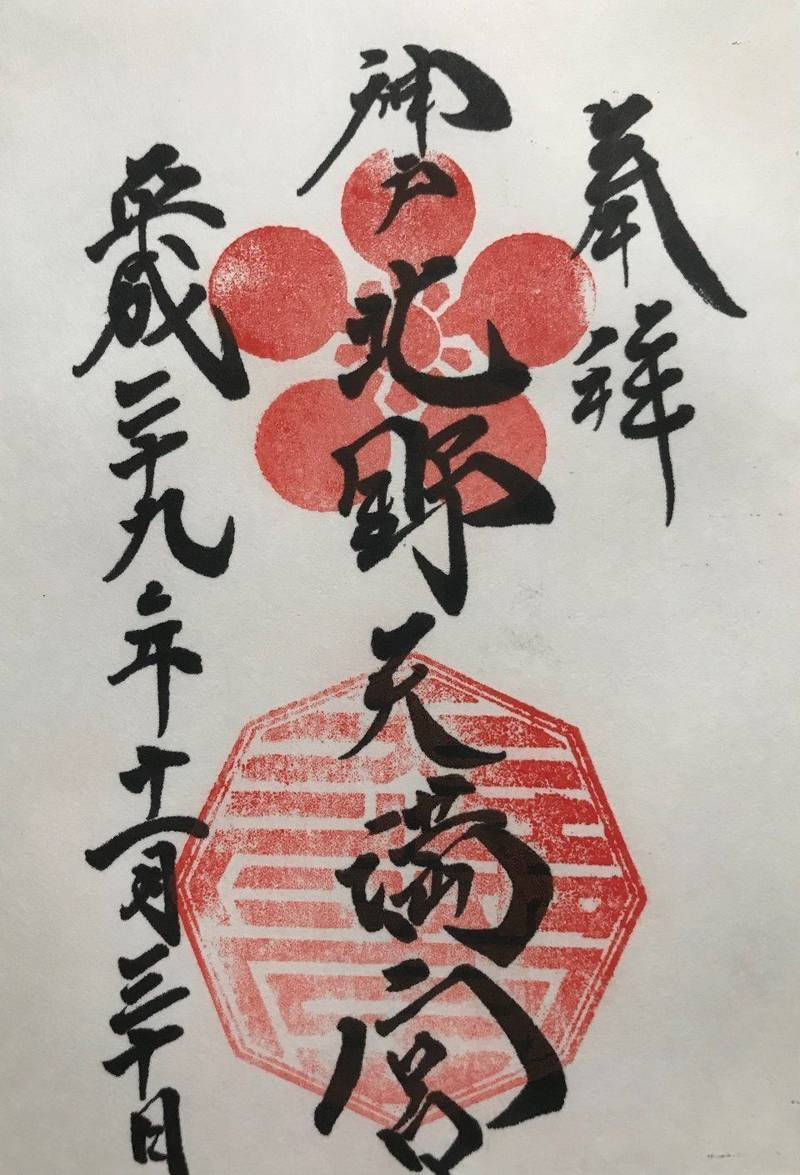 奉拝
神戸北野天満宮
平成二十九年十一月三十日